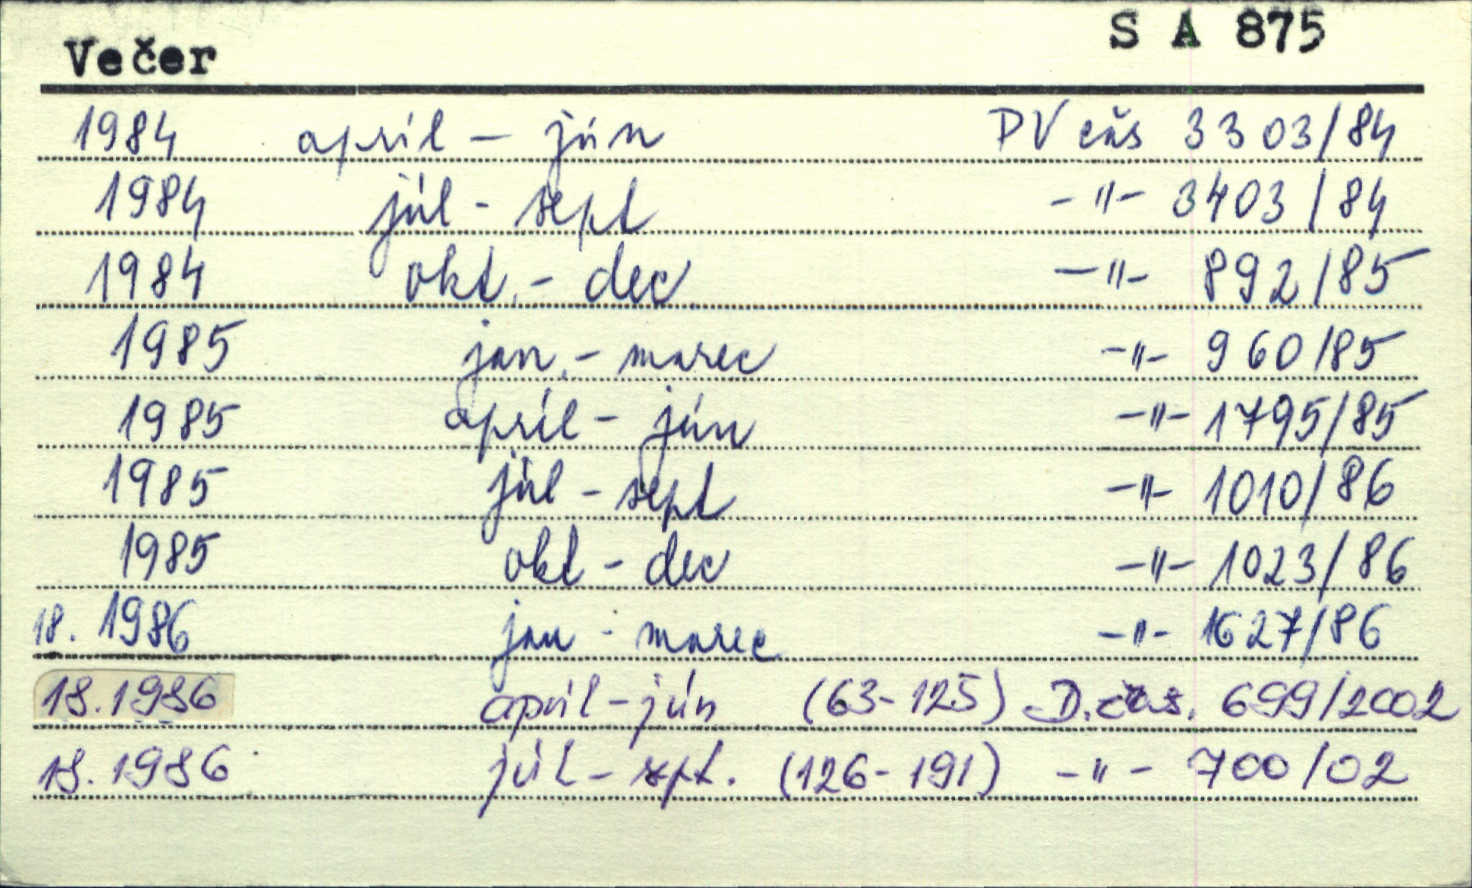 Večer S A 875
1984 apríl - jún PV čas 3303/84
1984 júl - sept -"- 3403/84
1984 okt. - dec -"- 892/85
1985 jan. - marec -"- 960/85
1985 apríl - jún -"- 1795/85
1985 júl - sept -"- 1010/86
1985 okt - dec -"- 1023/86
18. 1986 jan - marec -"- 1627/86
18. 1986 apríl - jún (63-125) D. čas. 699/2002
18. 1986 júl - sept. (126-191) -"- 700/02